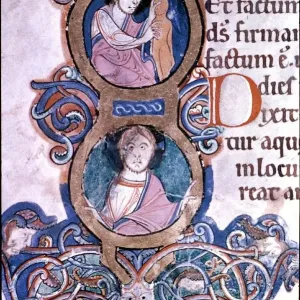 Et factum
ds firmam
factum e
dies
Dixert
tur aqu
in locu
reat a